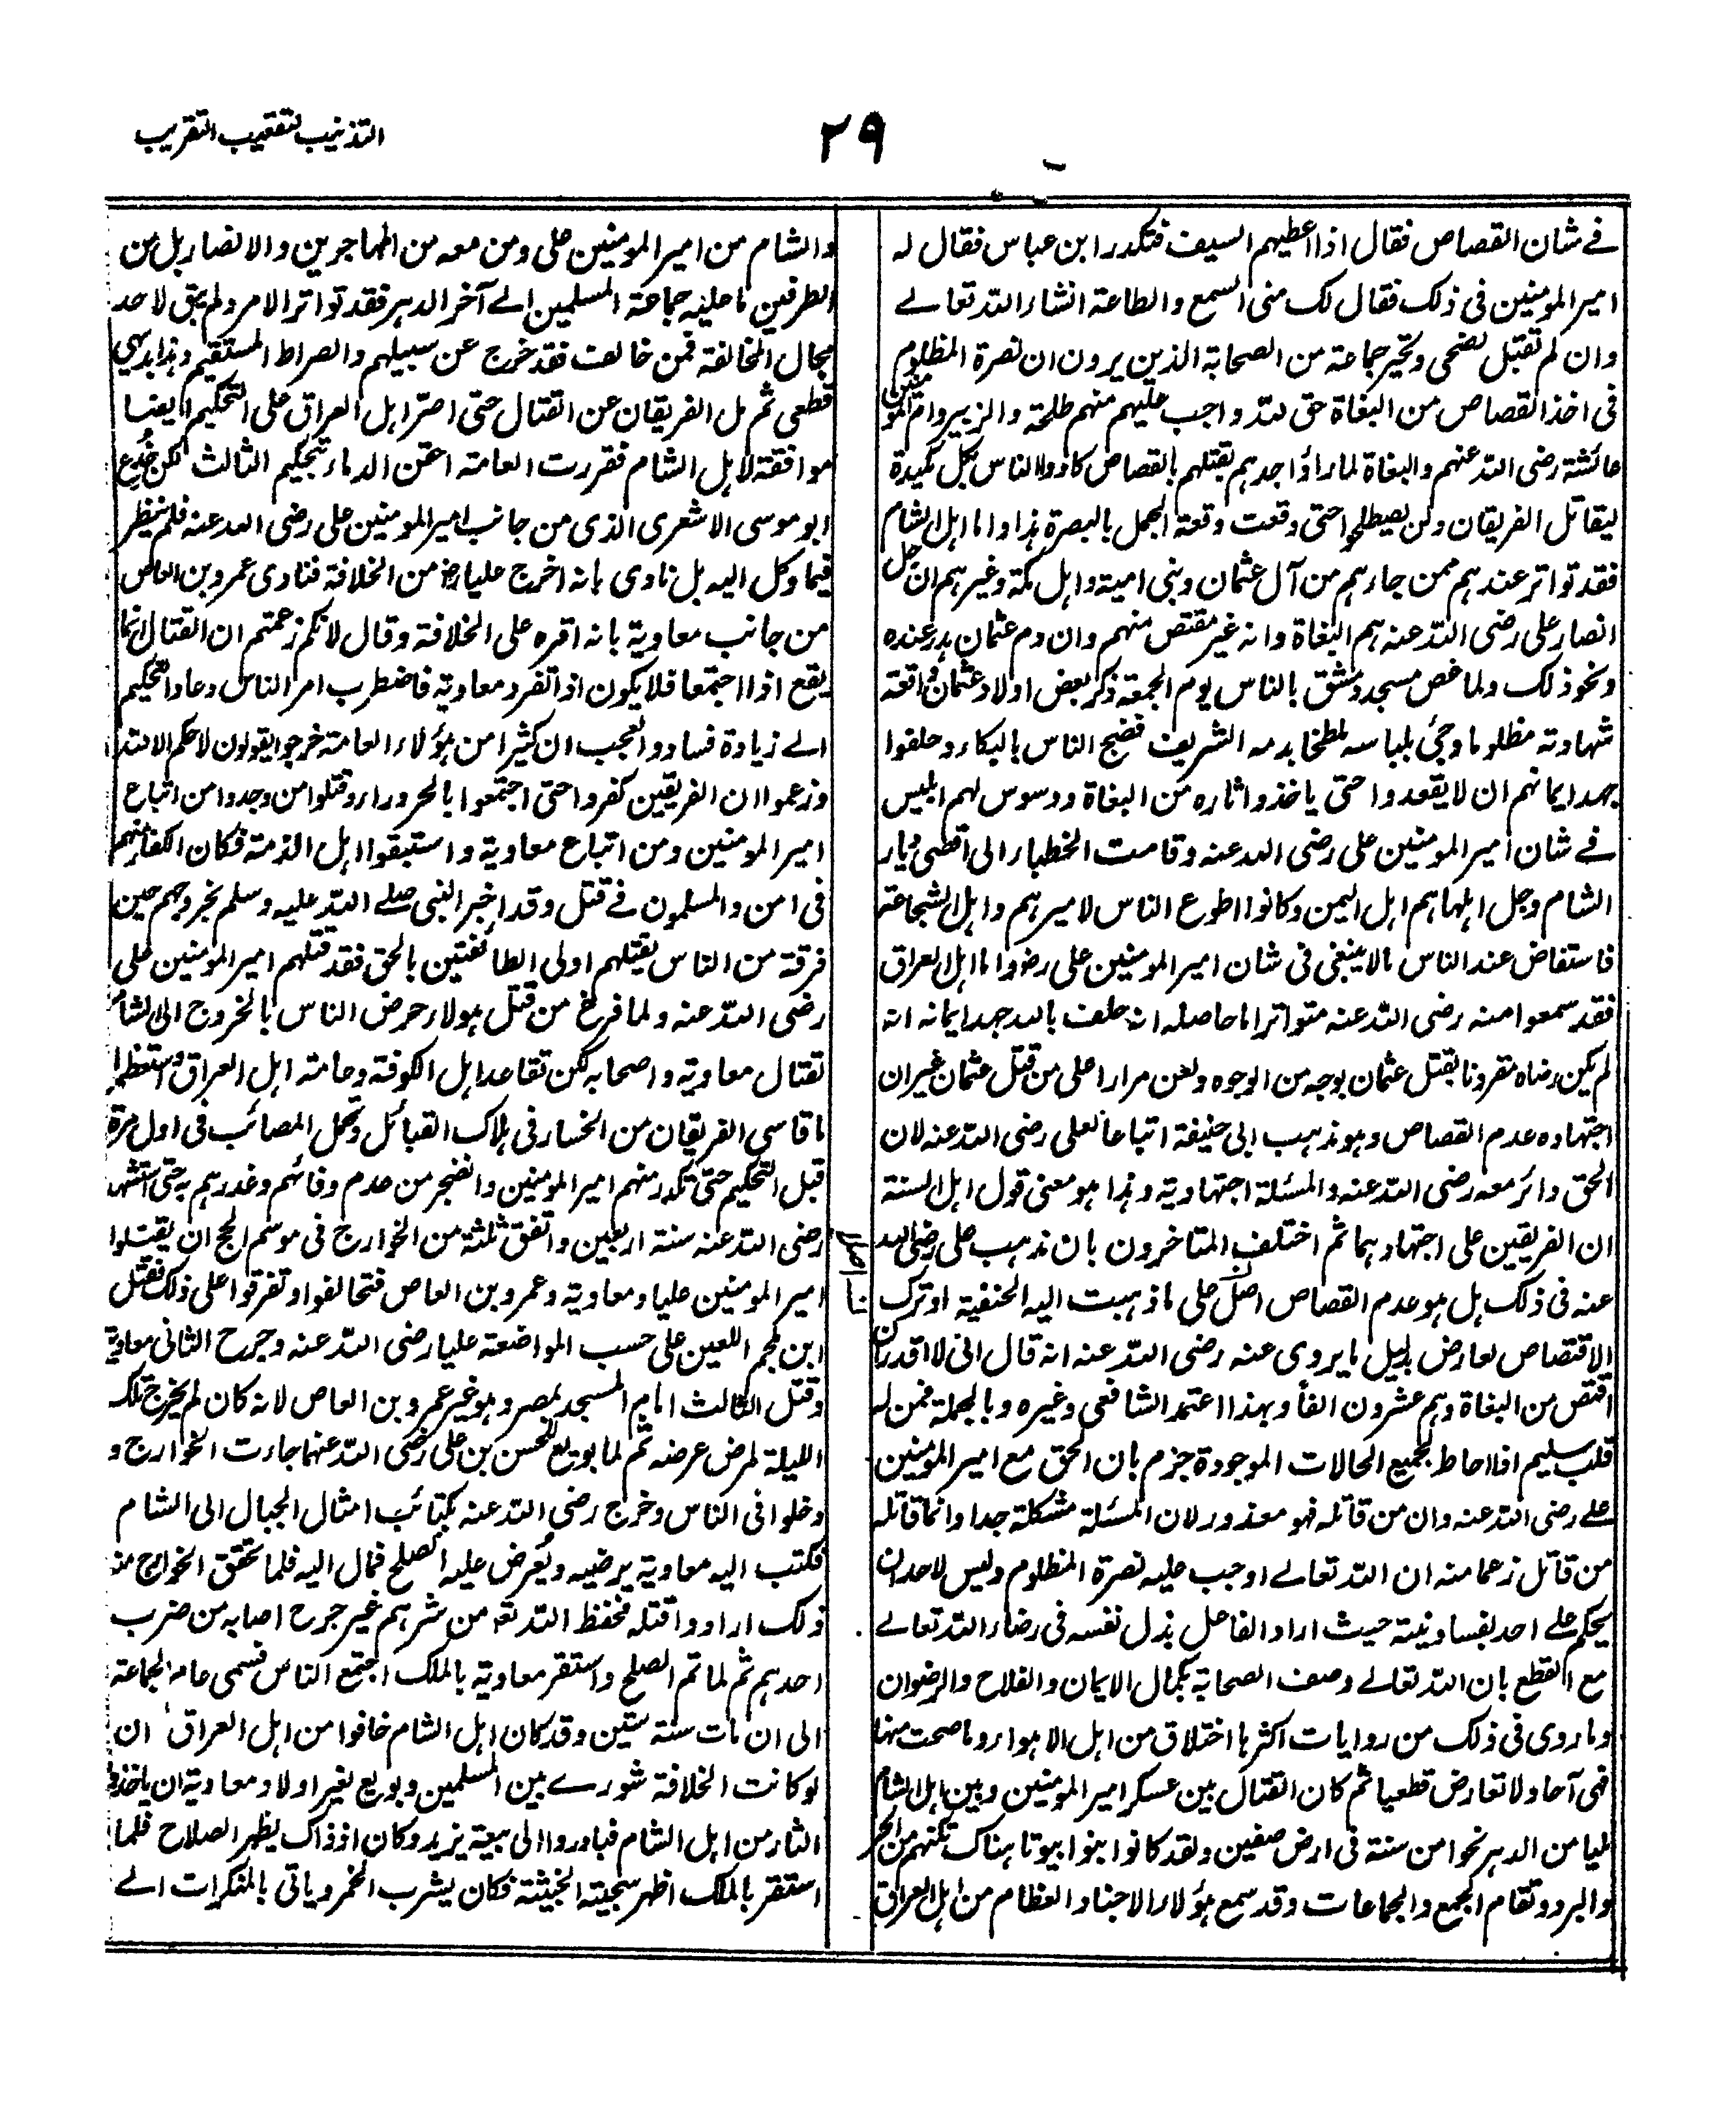 ٢٩
التذنيب لتعقيب التقريب
في شان القصاص فقال اذا اعطيهم السيف فتكدر ابن عباس فقال له
امير المومنين فى ذلك فقال لك منى السمع والطاعة انشاء الله تعالے
وان لم تقبل نصحى وتحير جماعة من الصحابة الذين يرون ان نصرة المظلوم
فى اخذ القصاص من البغاة حق لله واجب عليهم منهم طلحة والزبير وام المومنين
عائشة رضى الله عنهم والبغاة لما راؤا جدهم بقتلهم بالقصاص كادوا الناس بكل مكيدة
ليقاتل الفريقان ولن يصطلحوا حتى وقعت وقعة الجمل بالبصرة هذا واما اهل الشام
فقد تواتر عندهم ممن جاءهم من آل عثمان وبنى امية واهل مكة وغيرهم ان جل
انصار على رضى الله عنه هم البغاة وانه غير مقتص منهم وان دم عثمان هدر عنده
ونحو ذلك ولما غص مسجد دمشق بالناس يوم الجمعة ذكر بعض اولاد عثمان واقعة
شهادته مظلوما وجئ بلباسه ملطخا بدمه الشريف فضج الناس بالبكاء وحلفوا
جهد ايمانهم ان لا يقعدوا حتى ياخذوا ثاره من البغاة ووسوس لهم ابليس
في شان امير المومنين على رضى الله عنه وقامت الخطباء الى اقصى ديار
الشام وجل اهلها هم اهل اليمن وكانوا اطوع الناس لاميرهم واهل الشجاعة
فاستفاض عند الناس مالا ينبغى فى شان امير المومنين على رضو اما اهل العراق
فقد سمعوا منه رضى الله عنه متواترا ما حاصله انه حلف بالله جهد ايمانه انه
لم يكن رضاه مقرونا بقتل عثمان بوجه من الوجوه ولعن مرارا على من قتل عثمان غير ان
اجتهاده عدم القصاص وهو مذهب ابى حنيفة اتباعا لعلى رضى الله عنه لان
الحق دائر معه رضى الله عنه والمسئلة اجتهادية وهذا هو معنى قول اهل السنة
ان الفريقين على اجتهادهما ثم اختلف المتاخرون بان مذهب على رضى الله
عنه فى ذلك هل هو عدم القصاص اصل على ما ذهبت اليه الحنفية او ترك
الاقتصاص لعارض بدليل ما يروى عنه رضى الله عنه انه قال انى لا اقدر ان
اقتص من البغاة وهم عشرون الفا وبهذا اعتمد الشافعى وغيره وبالجملة فمن له
قلب سليم اذا احاط لجميع الحالات الموجودة جزم بان الحق مع امير المومنين
علے رضى الله عنه وان من قاتله فهو معذور لان المسئلة مشكلة جدا وانما قاتله
من قاتل زعما منه ان الله تعالے اوجب عليه نصرة المظلوم وليس لاحد ان
يحكم علے احد بفساد نيته حيث اراد الفاعل بذل نفسه فى رضاء الله تعالے
مع القطع بان الله تعالے وصف الصحابة بكمال الايمان والفلاح والرضوان
وما روى فى ذلك من روايات اكثرها اختلاق من اهل الاهواء وما صحت منها
فهى آحاد لا تعارض قطعيا ثم كان القتال بين عسكر امير المومنين وبين اهل الشام
مليا من الدهر نحوا من سنة فى ارض صفين ولقد كانوا بنوا بيوتا هناك تكنهم من الحر
والبرد وتقام الجمع والجماعات وقد سمع هؤلاء الاجناد العظام من اهل العراق
والشام من امير المومنين على ومن معه من المهاجرين والانصار بل من
الطرفين ما عليه جماعة المسلمين الے آخر الدهر فقد تواتر الامر ولم يبق لاحد
مجال المخالفة فمن خالفت فقد خرج عن سبيلهم والصراط المستقيم وهذا بديهى
قطعى ثم مل الفريقان عن القتال حتى اصر اهل العراق على التحكيم ايضا
موافقة لاهل الشام فقررت العامة اعتن الدماء تحكيم الثالث لكن خُدِع
ابو موسى الاشعرى الذى من جانب امير المومنين على رضى الله عنه فلم ينظر
فيما وكل اليه بل نادى بانه اخرج عليا رضـ من الخلافة فنادى عمرو بن العاص
من جانب معاوية بانه اقره على الخلافة وقال لانكم زعمتم ان القتال انما
يقع اذا اجتمعا فلا يكون اذا تفرد معاوية فاضطرب امر الناس وعاد التحكيم
الے زيادة فساد والعجب ان كثيرا من هؤلاء العامة خرجوا يقولون لا حكم الا لله
وزعموا ان الفريقين كفروا حتى اجتمعوا بالحروراء وقتلوا من وجدوا من اتباع
امير المومنين ومن اتباع معاوية واستبقوا اهل الذمة فكان الكفار منهم
فى امن والمسلمون فے قتل وقد اخبر النبى صلے الله عليه وسلم بخروجهم حين
فرقة من الناس يقتلهم اولى الطائفتين بالحق فقد قتلهم امير المومنين على
رضى الله عنه ولما فرغ من قتل هولاء حرض الناس بالخروج الى الشام
لقتال معاوية واصحابه لكن تقاعد اهل الكوفة وعامة اهل العراق واستعظموا
ما قاسى الفريقان من الخسار فى هلاك القبائل وتحمل المصائب فى اول مرة
قبل التحكيم حتى تكدر منهم امير المومنين وانضجر من عدم وفائهم وغدرهم به حتى استشهد
رضى الله عنه سنة اربعين واتفق ثلثة من الخوارج فى موسم الحج ان يقتلوا
امير المومنين عليا ومعاوية وعمرو بن العاص فتحالفوا وتفرقوا على ذلك فقتل
ابن ملجم اللعين على حسب المواضعة عليا رضى الله عنه وجرح الثانى معاوية
وقتل الثالث امام المسجد بمصر وهو غير عمرو بن العاص لانه كان لم يخرج تلك
الليلة لمرض عرضه ثم لما بويع للحسن بن على رضى الله عنهما جاءت الخوارج و
دخلوا فى الناس وخرج رضى الله عنه بكتائب امثال الجبال الى الشام
فكتب اليه معاوية يرضيه ويعرض عليه الصلح فمال اليه فلما تحقق الخوارج منه
ذلك ارادوا قتله فحفظ الله تعـ من شرهم غير جرح اصابه من ضرب
احدهم ثم لما تم الصلح واستقر معاوية بالملك اجتمع الناس فسمى عام الجماعة
الى ان مات سنة ستين وقد كان اهل الشام خافوا من اهل العراق ان
لو كانت الخلافة شورے بين المسلمين وبويع لغير اولاد معاوية ان ياخذوا
الثار من اهل الشام فبادروا الى بيعة يزيد وكان اذ ذاك يظهر الصلاح فلما
استقر بالملك اظهر سجيته الخبيثة فكان يشرب الخمر وياتى بالمنكرات الے